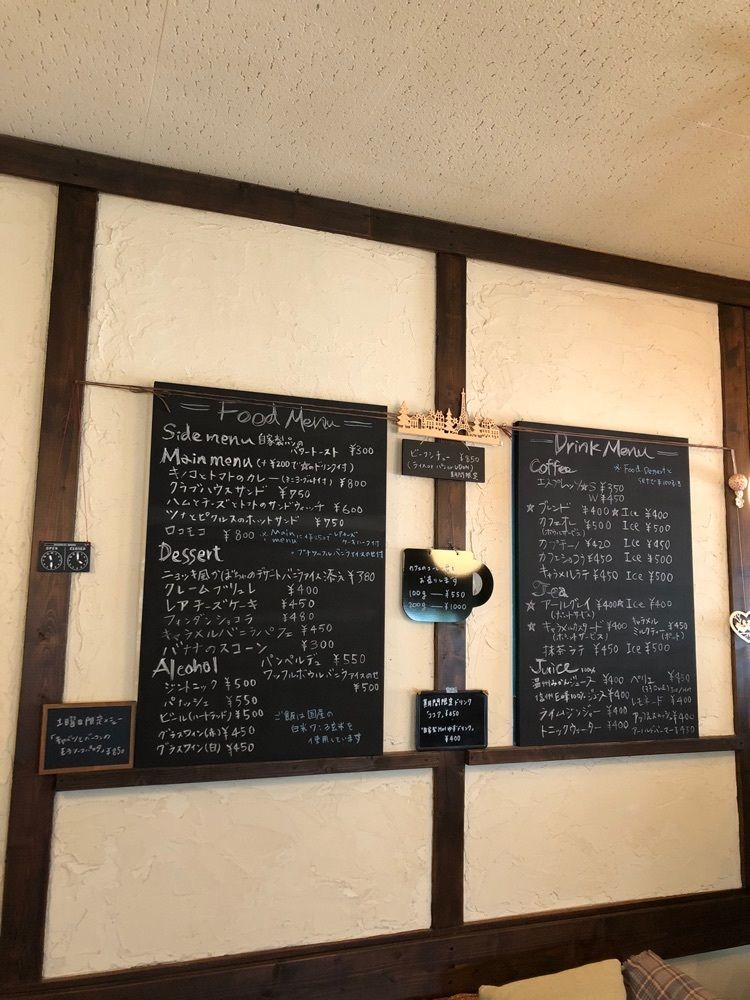 Food Menu
Side menu 自家製パンの
バタートースト ¥300
Main menu (+¥200で☆のドリンク付)
キノコとトマトのカレー (ミニヨーグルト付) ¥800
クラブハウスサンド ¥750
ハムとチーズとトマトのサンドウィッチ ¥600
ツナとピクルスのホットサンド ¥750
ロコモコ ¥800 ※Main menuに
Dessert
ニョッキ風かぼちゃのデザートバニラアイス添え ¥380
クレームブリュレ ¥400
レアチーズケーキ ¥450
フォンダンショコラ ¥480
キャラメルバニラパフェ ¥450
バナナのスコーン ¥300
パンペルデュ ¥550
ワッフルボウルバニラアイスのせ
¥500
Alcohol
ジントニック ¥500
パナシェ ¥550
ビール(ハートランド) ¥500
グラスワイン(赤) ¥450
グラスワイン(白) ¥450
ご飯は国産の
白米、うこ玄米を
使用しています
OPEN
CLOSED
土日曜日限定メニュー
¥850
ビーフシチュー ¥850
(ライス or パン or UDON)
期間限定
お売りします
100g — ¥550
200g — ¥1000
期間限定ドリンク
ココア ¥450
¥400
Drink Menu
Coffee
※ Food, Dessertと
セットで¥100引き
エスプレッソ ☆S ¥350
W ¥450
☆ブレンド ¥400 ☆Ice ¥400
カフェオレ ¥500 Ice ¥500
(ボウルサービス)
カプチーノ ¥420 Ice ¥450
カフェショコラ ¥450 Ice ¥500
キャラメルラテ ¥450 Ice ¥500
Tea
☆アールグレイ ¥400 ☆Ice ¥400
(ポットサービス)
☆キャラメルマスタード ¥400
(ポットサービス)
キャラメル
ミルクティー ¥450
(ポット)
抹茶ラテ ¥450 Ice ¥500
Juice 100%
温州みかんジュース ¥400
信州巨峰100%ジュース ¥450
ライムジンジャー ¥400
トニックウォーター ¥400
ペリエ ¥450
レモネード ¥400
アーノルドパーマー ¥450